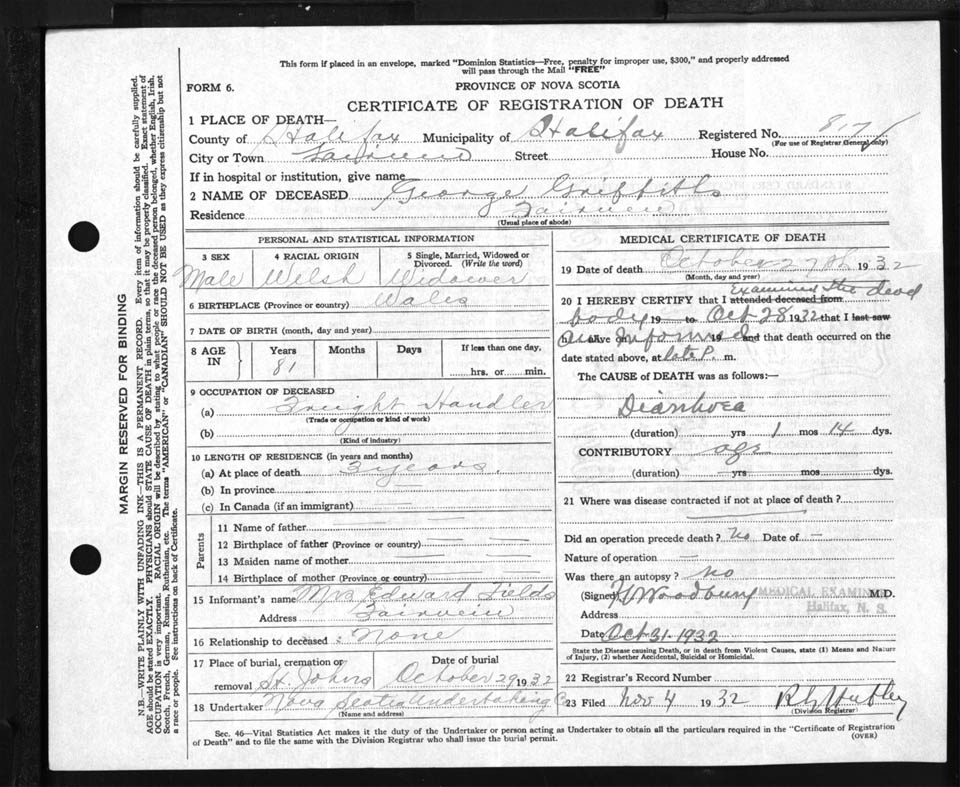 This form if placed in an envelope, marked "Dominion Statistics—Free, penalty for improper use, $300," and properly addressed
will pass through the Mail "FREE"
FORM 6.
PROVINCE OF NOVA SCOTIA
CERTIFICATE OF REGISTRATION OF DEATH
1 PLACE OF DEATH—
County of Halifax Municipality of Halifax Registered No. 817
(For use of Registrar General only)
City or Town Fairview Street House No.
If in hospital or institution, give name
2 NAME OF DECEASED George Griffiths
Residence Fairview
(Usual place of abode)
PERSONAL AND STATISTICAL INFORMATION
3 SEX 4 RACIAL ORIGIN 5 Single, Married, Widowed or Divorced. (Write the word)
Male Welsh Widower
6 BIRTHPLACE (Province or country) Wales
7 DATE OF BIRTH (month, day and year)
8 AGE IN Years Months Days If less than one day,
81 hrs. or min.
9 OCCUPATION OF DECEASED
(a) Freight Handler
(Trade or occupation or kind of work)
(b)
(Kind of industry)
10 LENGTH OF RESIDENCE (in years and months)
(a) At place of death 3 years.
(b) In province
(c) In Canada (if an immigrant)
Parents
11 Name of father
12 Birthplace of father (Province or country)
13 Maiden name of mother
14 Birthplace of mother (Province or country)
15 Informant's name Mrs Edward Fields
Address Fairview
16 Relationship to deceased : None
17 Place of burial, cremation or removal Date of burial
St. Johns October 29 1932
18 Undertaker Nova Scotia Undertaking Co
(Name and address)
MEDICAL CERTIFICATE OF DEATH
19 Date of death October 27th 1932
(Month, day and year)
Examined the dead
20 I HEREBY CERTIFY that I attended deceased from
body 19 to Oct 28 1932 that I last saw
h alive on Informed 19 and that death occurred on the
date stated above, at late P. m.
The CAUSE of DEATH was as follows:—
Diarrhoea
(duration) yrs 1 mos 14 dys.
CONTRIBUTORY age
(duration) yrs mos dys.
21 Where was disease contracted if not at place of death ?
Did an operation precede death ? No Date of —
Nature of operation —
Was there an autopsy ? No
(Signed) Woodbury M.D.
MEDICAL EXAMINER
Address Halifax, N. S.
Date Oct 31-1932
State the Disease causing Death, or in death from Violent Causes, state (1) Means and Nature
of Injury, (2) whether Accidental, Suicidal or Homicidal.
22 Registrar's Record Number
23 Filed Nov 4 1932
(Division Registrar)
Sec. 46—Vital Statistics Act makes it the duty of the Undertaker or person acting as Undertaker to obtain all the particulars required in the "Certificate of Registration
of Death" and to file the same with the Division Registrar who shall issue the burial permit.
(OVER)
MARGIN RESERVED FOR BINDING
N.B.—WRITE PLAINLY WITH UNFADING INK—THIS IS A PERMANENT RECORD. Every item of information should be carefully supplied.
AGE should be stated EXACTLY. PHYSICIANS should STATE CAUSE OF DEATH in plain terms, so that it may be properly classified. Exact statement of
OCCUPATION is very important. RACIAL ORIGIN will be described by stating to what people or race the deceased person belonged, whether English, Irish,
Scotch, French, German, Russian, Ruthenian, etc. The terms "AMERICAN" or "CANADIAN" SHOULD NOT BE USED as they express citizenship but not
a race or people. See instructions on back of Certificate.